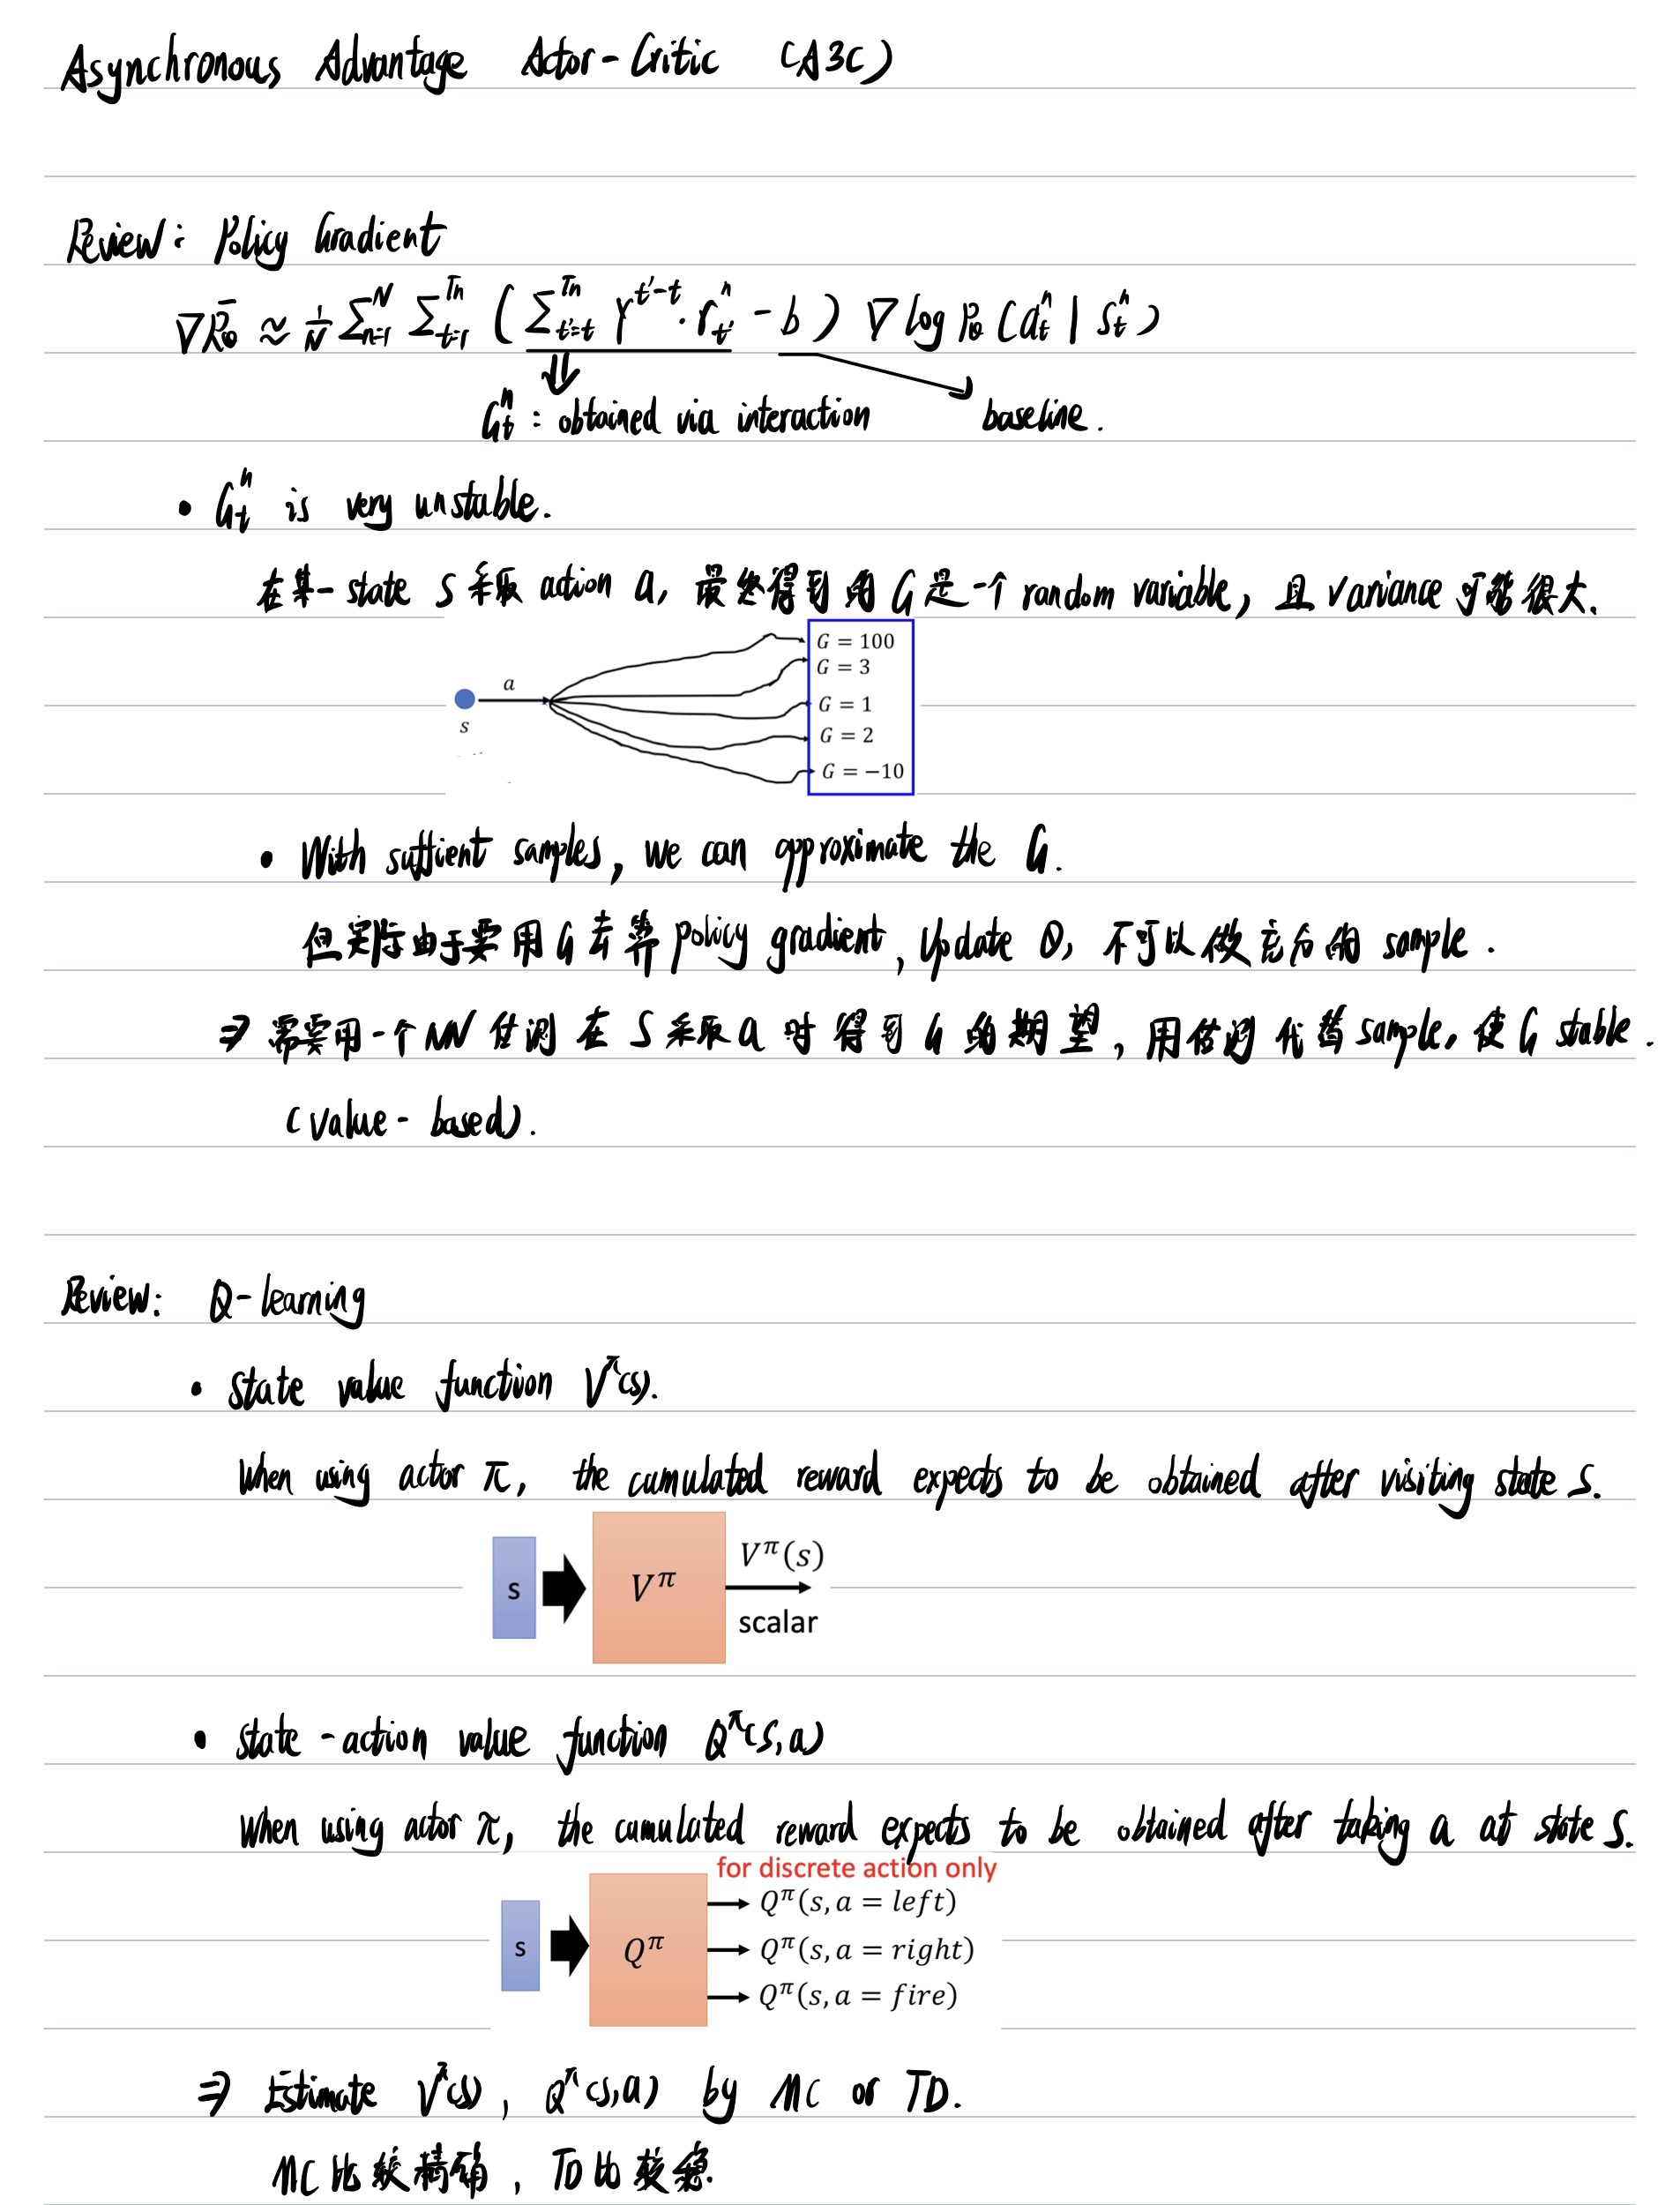 Asynchronous Advantage Actor-Critic (A3C)
Review: Policy Gradient
∇R̄θ ≈ 1/N Σ_{n=1}^{N} Σ_{t=1}^{Tn} ( Σ_{t'=t}^{Tn} γ^{t'-t} · r_{t'}^{n} - b ) ∇ log Pθ (a_t^n | s_t^n)
G_t^n : obtained via interaction baseline.
• G_t^n is very unstable.
在某一 state S 采取 action a, 最终得到的 G 是一个 random variable, 且 variance 可能很大.
G = 100
G = 3
a
G = 1
s
G = 2
G = −10
• With suffient samples, we can approximate the G.
但实际由于要用 G 去算 policy gradient, update θ, 不可以做充分的 sample.
⇒ 需要用一个 NN 估测在 S 采取 a 时得到 G 的期望, 用估测代替 sample, 使 G stable.
(value-based).
Review: Q-learning
• state value function V^π(s).
When using actor π, the cumulated reward expects to be obtained after visiting state S.
V^π(s)
s V^π
scalar
• state-action value function Q^π(s,a)
When using actor π, the cumulated reward expects to be obtained after taking a at state S.
for discrete action only
Q^π(s, a = left)
s Q^π Q^π(s, a = right)
Q^π(s, a = fire)
⇒ Estimate V^π(s), Q^π(s,a) by MC or TD.
MC比较精确, TD比较稳.